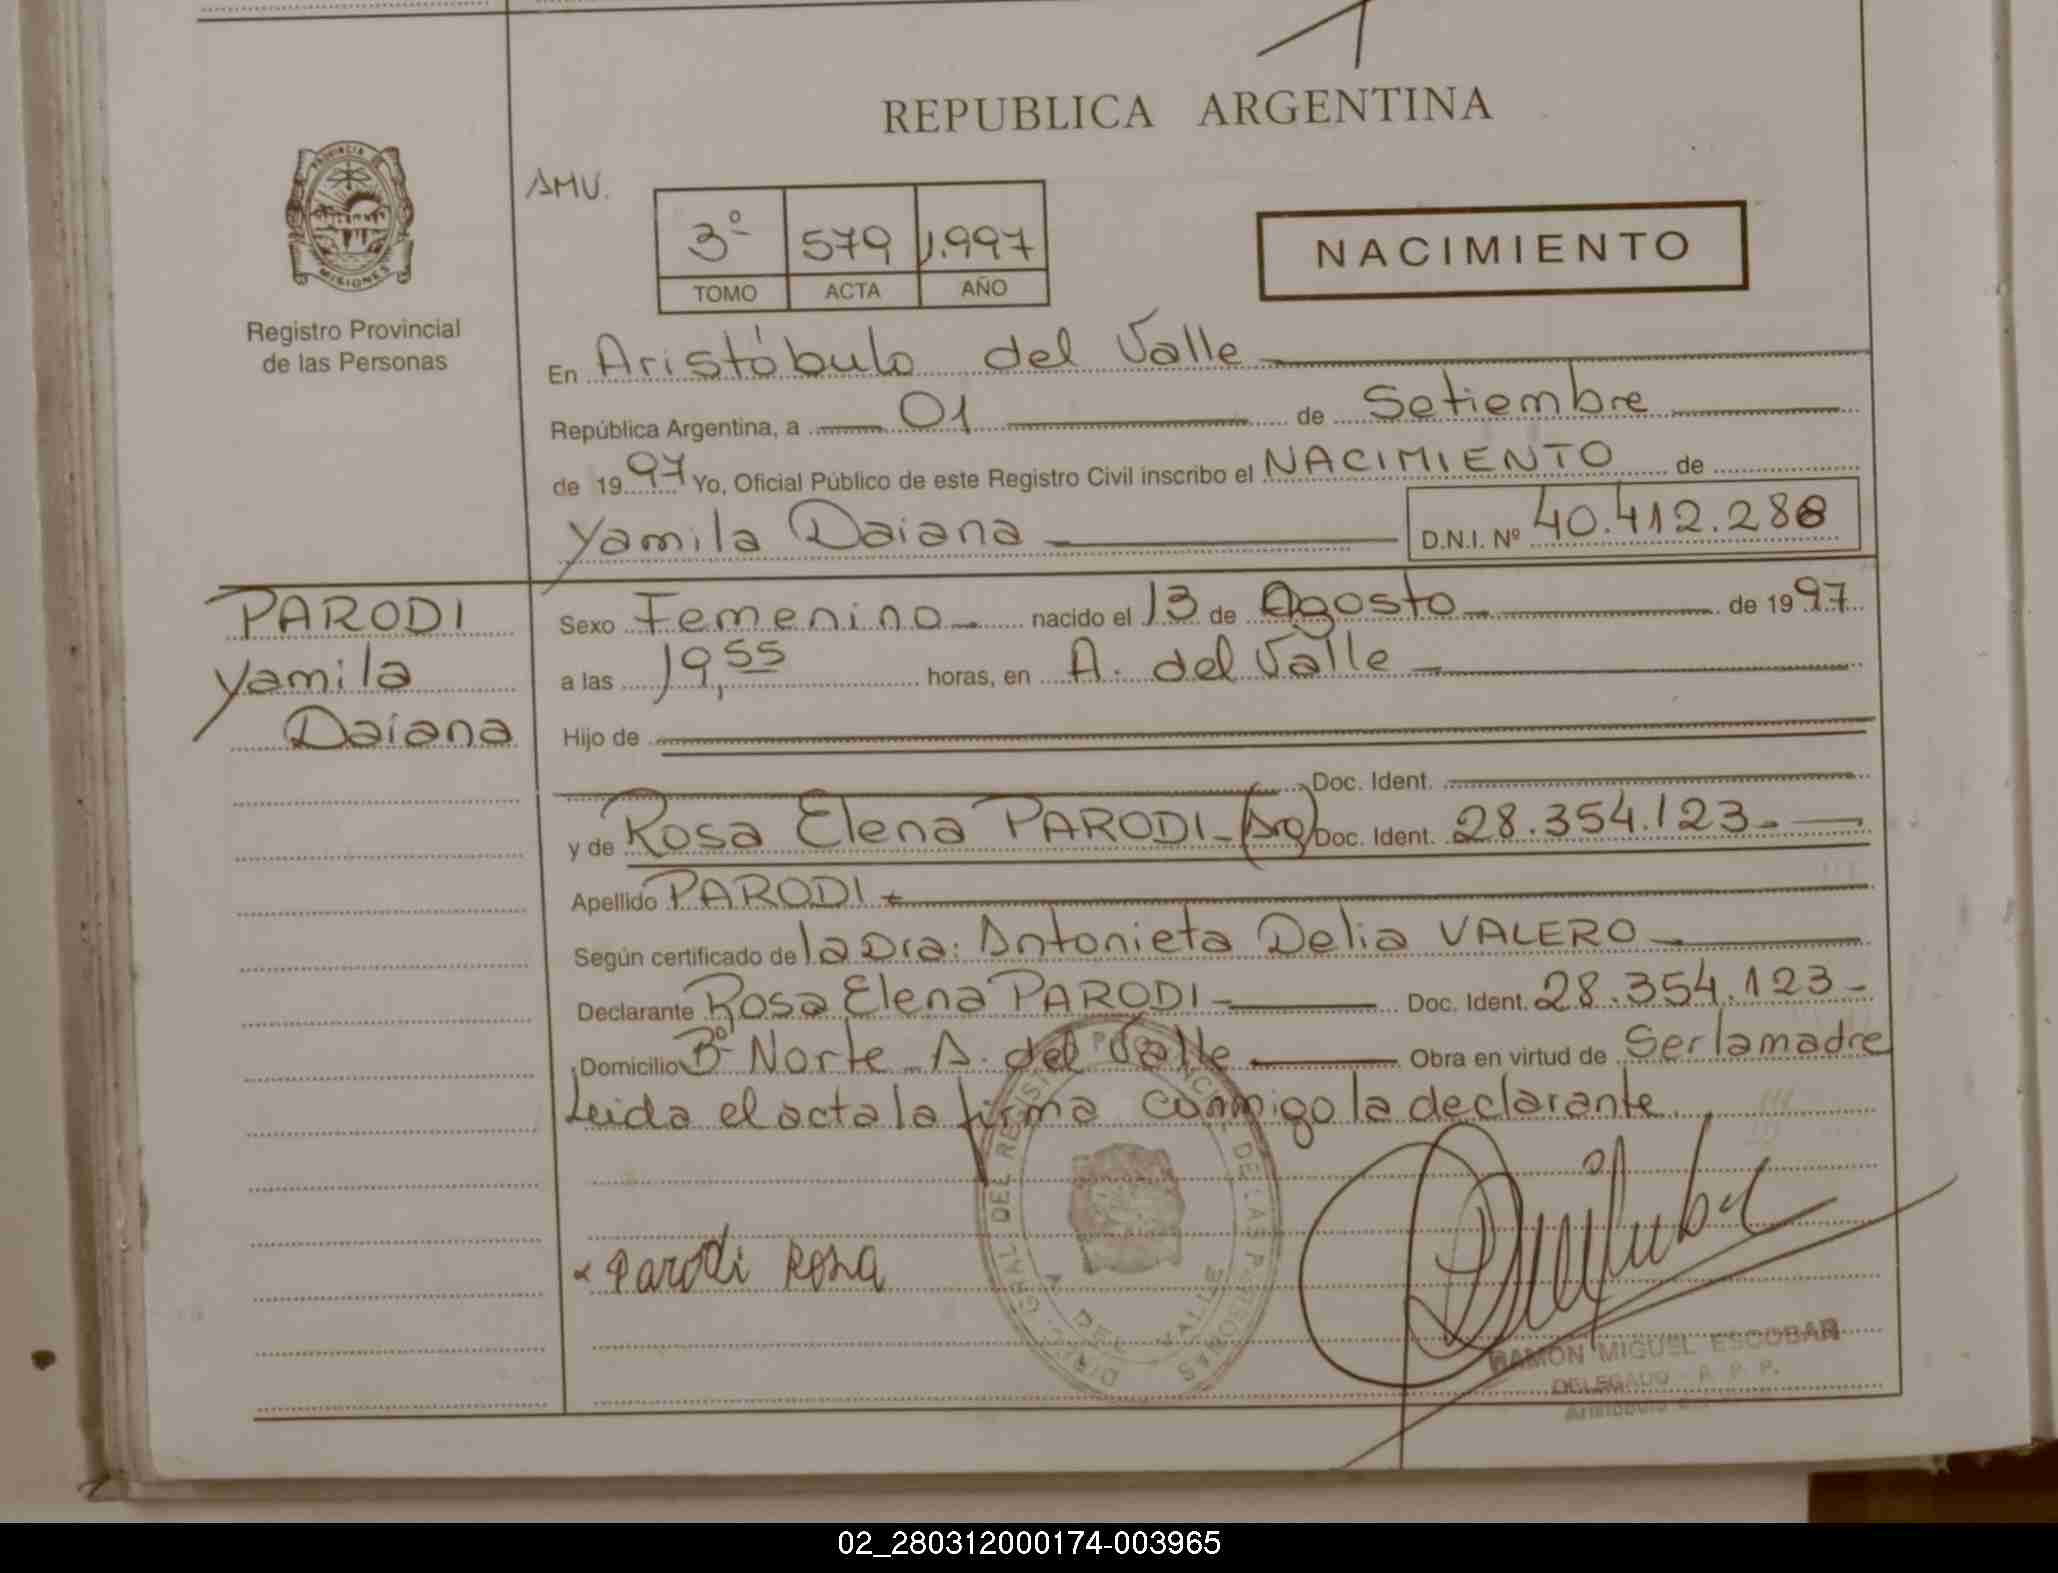 REPUBLICA ARGENTINA
PROVINCIA DE
MISIONES
Registro Provincial
de las Personas
AMU.
3º 579 1.997
TOMO ACTA AÑO
NACIMIENTO
En Aristóbulo del Valle
República Argentina, a 01 de Setiembre
de 1997 Yo, Oficial Público de este Registro Civil inscribo el NACIMIENTO de
Yamila Daiana D.N.I. Nº 40.412.288
PARODI
Yamila
Daiana
Sexo Femenino nacido el 13 de Agosto de 1997
a las 19,55 horas, en A. del Valle
Hijo de
Doc. Ident.
y de Rosa Elena PARODI-(Arg) Doc. Ident. 28.354.123-
Apellido PARODI
Según certificado de la Dra: Antonieta Delia VALERO
Declarante Rosa Elena PARODI- Doc. Ident. 28.354.123-
Domicilio Bº Norte A. del Valle Obra en virtud de Ser la madre
Leida el acta la firma conmigo la declarante
Parodi Rosa
GRAL DEL DE LAS PERSONAS
A DEL VALLE
RAMON MIGUEL ESCOBAR
DELEGADO - R P P.
02_280312000174-003965